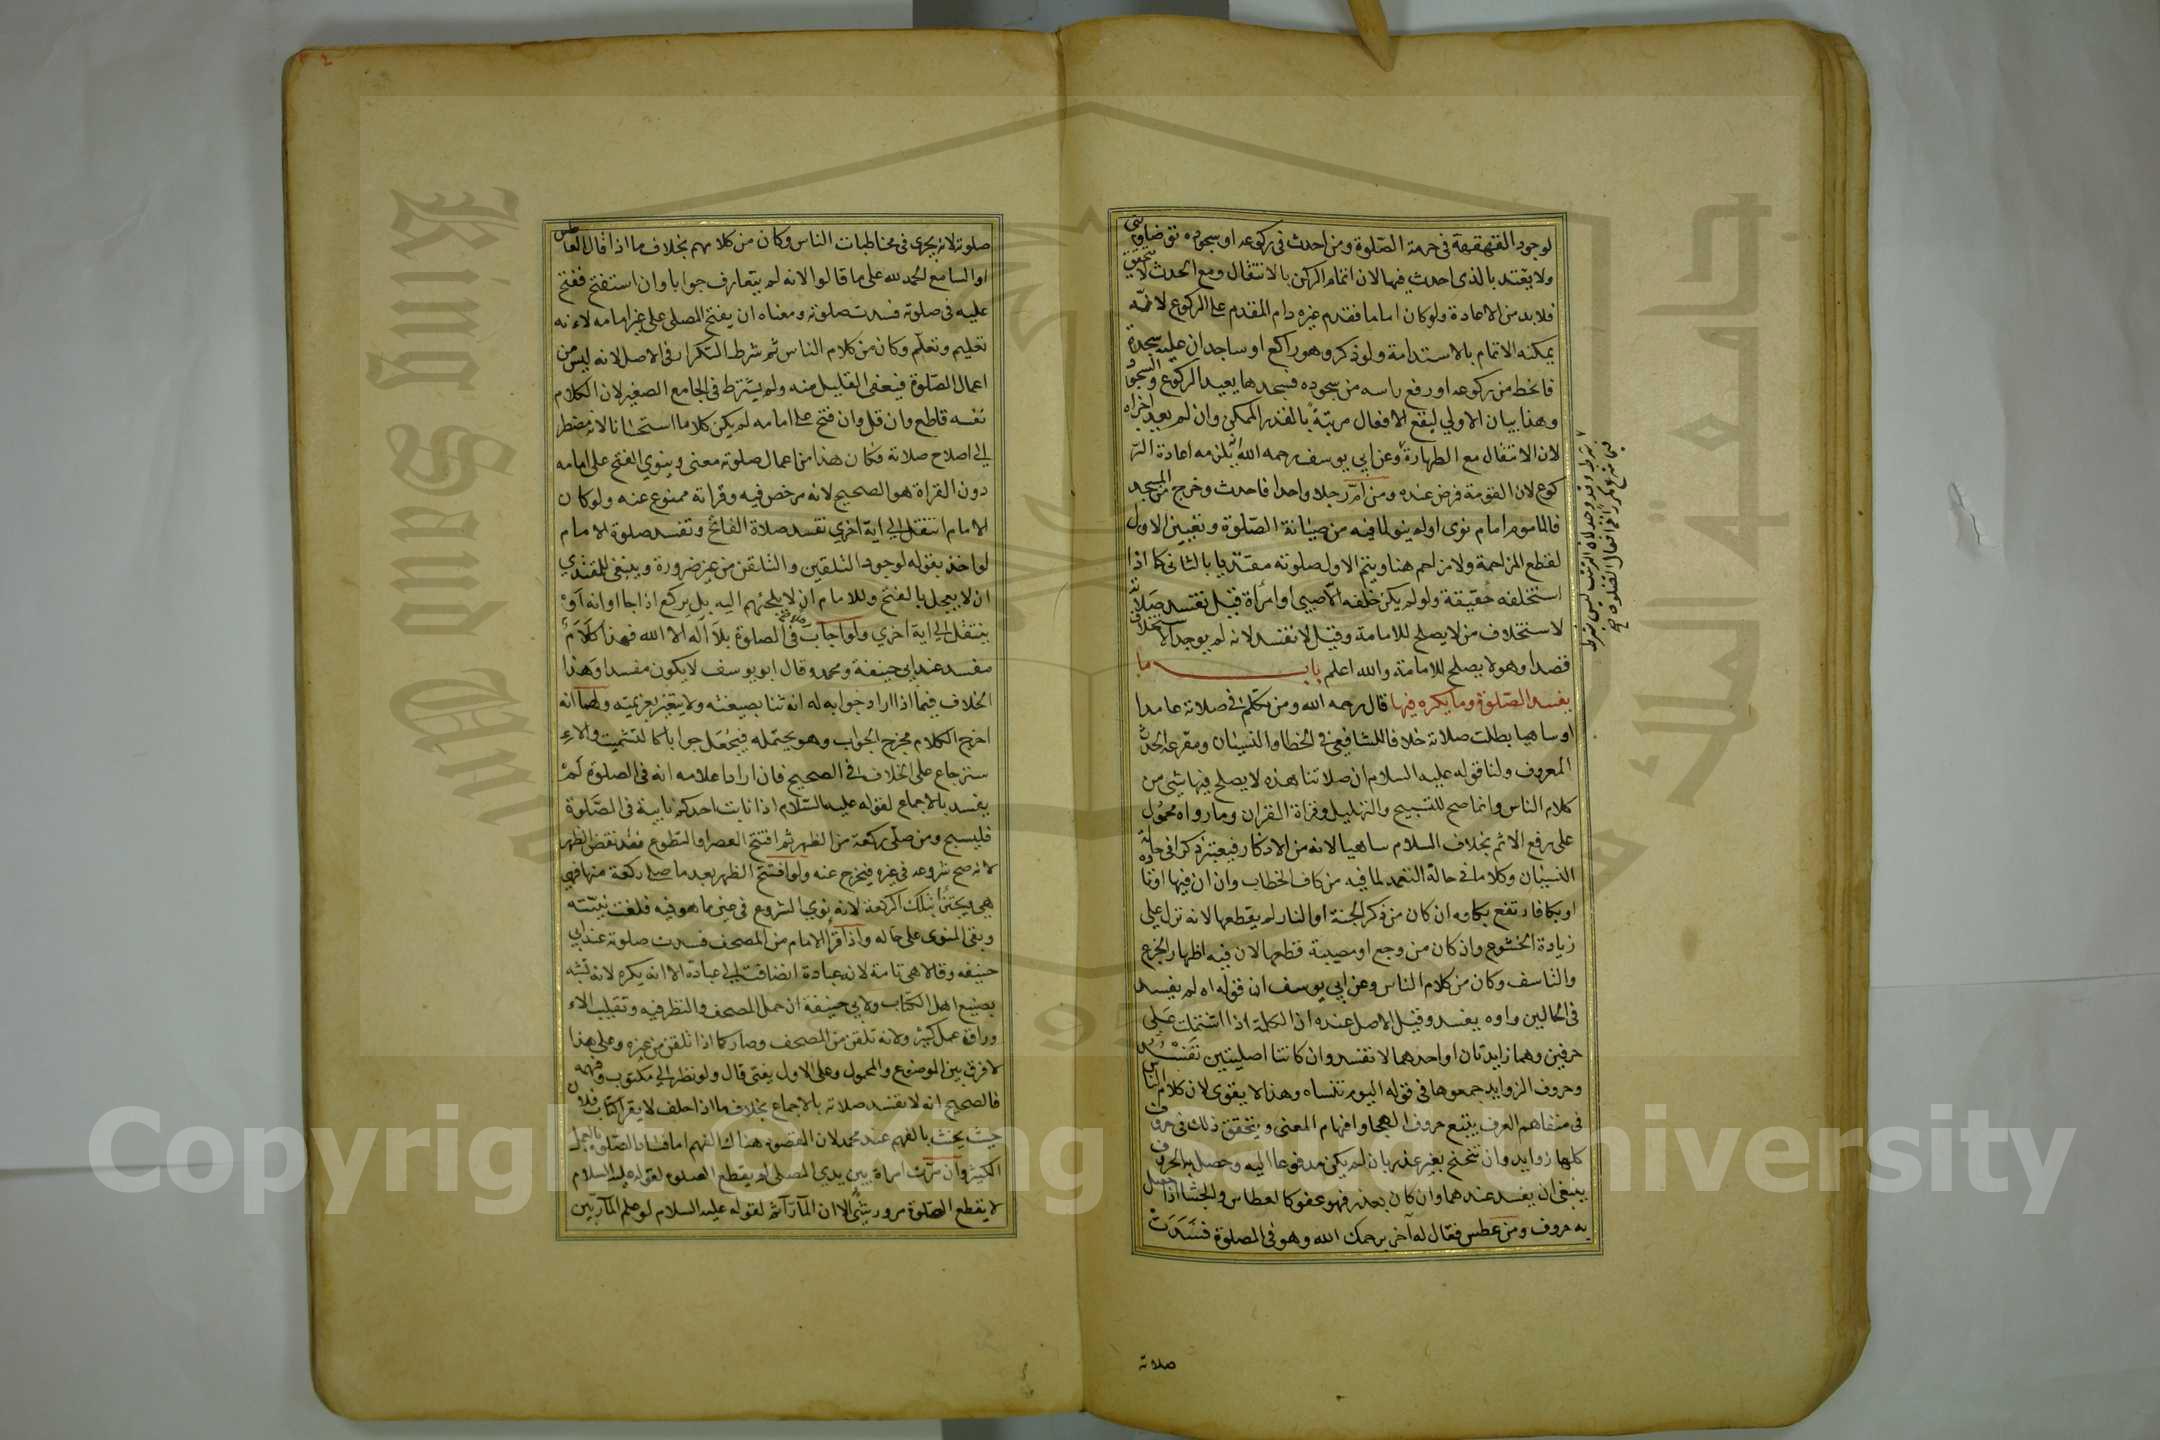 لوجود القهقهة فى حرمة الصّلوة ومن احدث فى ركوعه او سجوده توضا وبنى
ولا يعتد بالذى احدث فيها لان اتمام الركن بالانتقال ومع الحدث لا يتحقق
فلا بد من الاعادة ولو كان اماما فقدم غيره دام المقدم على الركوع لانه
يمكنه الاتمام بالاستدامة ولو ذكر وهو راكع او ساجد ان عليه سجدة
فانحط من ركوعه او رفع راسه من سجوده فسجدها يعيد الركوع والسجود
وهذا بيان الاولي ليقع الافعال مرتبة بالقدر الممكن وان لم يعد اجزاه
لان الانتقال مع الطهارة وعن ابي يوسف رحمه الله يلزمه اعادة الر
كوع لان القومة فرض عنده ومن ام رجلا واحدا فاحدث وخرج من المسجد
فالماموم امام نوى اولم ينو لما فيه من صيانة الصّلوة وتعيين الاول
لقطع المزاحمة ولا مزاحم هنا ويتم الاول صلوته مقتديا بالثانى كما اذا
استخلفه حقيقة ولو لم يكن خلفه الا صبي او امرأة قيل تفسد صلاته
لاستخلاف من لا يصلح للامامة وقيل لا تفسد لانه لم يوجد الاستخلاف
قصدا وهو لا يصلح للامامة والله اعلم باب ما
يفسد الصّلوة وما يكره فيها قال رحمه الله ومن تكلم فى صلاته عامدا
او ساهيا بطلت صلاته خلافا للشافعى فى الخطا والنسيان ومفزعه الحديث
المعروف ولنا قوله عليه السلام ان صلاتنا هذه لا يصلح فيها شى من
كلام الناس وانما صح للتسبيح والتهليل وقراة القران وما رواه محمول
على رفع الاثم بخلاف السلام ساهيا لانه من الاذكار فيعتبر ذكرا فى حالة
النسيان وكلاما فى حالة التعمد لما فيه من كاف الخطاب وان ان فيها او تاوه
او بكا فارتفع بكاوه ان كان من ذكر الجنة او النار لم يقطعها لانه تدل على
زيادة الخشوع وان كان من وجع او مصيبة قطعها لان فيه اظهار الجزع
والتاسف وكان من كلام الناس وعن ابي يوسف ان قوله اه لم يفسد
فى الحالين واوه يفسد وقيل الاصل عنده ان الكلمة اذا اشتملت على
حرفين وهما زايدتان او احدهما لا تفسد وان كانتا اصليتين تفسد
وحروف الزوايد جمعوها فى قوله اليوم تنساه وهذا لا يقوى لان كلام الناس
فى متفاهم العرف يتبع حروف الهجا وافهام المعنى ويتحقق ذلك فى حروف
كلها زوايد وان تنحنح بغير عذر بان لم يكن مدفوعا اليه وحصل به الحروف
ينبغى ان يفسد عندهما وان كان بعذر فهو عفو كالعطاس والجشا اذا حصل
به حروف ومن عطس فقال له آخر يرحمك الله وهو فى الصلوة فسدت
صلاته
صلوته لانه يجرى فى مخاطبات الناس وكان من كلامهم بخلاف ما اذا قال العاطس
او السامع الحمد لله على ما قالوا لانه لم يتعارف جوابا وان استفتح ففتح
عليه فى صلوته فسدت صلوته ومعناه ان يفتح المصلى على غير امامه لانه
تعليم وتعلم وكان من كلام الناس ثم شرط التكرار فى الاصل لانه ليس من
اعمال الصّلوة فيعفى القليل منه ولم يشترط فى الجامع الصغير لان الكلام
نفسه قاطع وان قل وان فتح على امامه لم يكن كلاما استحسانا لانه مضطر
الى اصلاح صلاته فكان هذا من اعمال صلوته معنى وينوي الفتح على امامه
دون القراة هو الصحيح لانه مرخص فيه وقراته ممنوع عنه ولو كان
الامام انتقل الى اية اخري تفسد صلاة الفاتح وتفسد صلوة الامام
لو اخذ بقوله لوجود التلقين والتلقن من غير ضرورة وينبغى للمقتدي
ان لا يعجل بالفتح وللامام ان لا يلجئهم اليه بل يركع اذا جا اوانه او
ينتقل الى اية اخري ولو اجاب فى الصلوة بلا اله الا الله فهذا كلام
مفسد عند ابي حنيفة ومحمد وقال ابو يوسف لا يكون مفسدا وهذا
الخلاف فيما اذا اراد جوابه له انه ثنا بصيغته ولا يتغير بعزيمته ولهما انه
اخرج الكلام مخرج الجواب وهو يحتمله فيجعل جوابا كالتشميت والا
سترجاع على الخلاف فى الصحيح فان اراد اعلامه انه فى الصلوة لم
يفسد بالاجماع لقوله عليه السّلام اذا نابت احدكم نايبة فى الصّلوة
فليسبح ومن صلى ركعة من الظهر ثم افتتح العصر او التطوع فقد نقض الظهر
لانه صح شروعه فى غيره فيخرج عنه ولو افتتح الظهر بعد ما صلى ركعة منها فهي
هي ويجتزأ بتلك الركعة لانه نوي الشروع فى عين ما هو فيه فلغت نيته
وبقى المنوى على حاله واذا قرا الامام من المصحف فسدت صلوته عند ابي
حنيفة وقالا هى تامة لانه عبادة انضافت الى عبادة الا انه يكره لانه تشبه
بصنيع اهل الكتاب ولابي حنيفة ان حمل المصحف والنظر فيه وتقليب الا
وراق عمل كثير ولانه تلقن من المصحف وصار كما اذا تلقن من غيره وعلى هذا
لا فرق بين الموضوع والمحمول وعلى الاول يفتى قال ولو نظر الى مكتوب وفهمه
فالصحيح انه لا تفسد صلاته بالاجماع بخلاف ما اذا حلف لا يقرا كتاب فلان
حيث يحنث بالفهم عند محمد لان المقصود هناك الفهم اما فساد الصلوة بالعمل
الكثير وان مرت امراة بين يدي المصلى لم يقطع الصلوة لقوله عليه السلام
لا يقطع الصّلوة مرور شئ الا ان المار آثم لقوله عليه السلام لو علم المار بين
Copyright © King Saud University
King Saud University
جامعة الملك سعود
1957